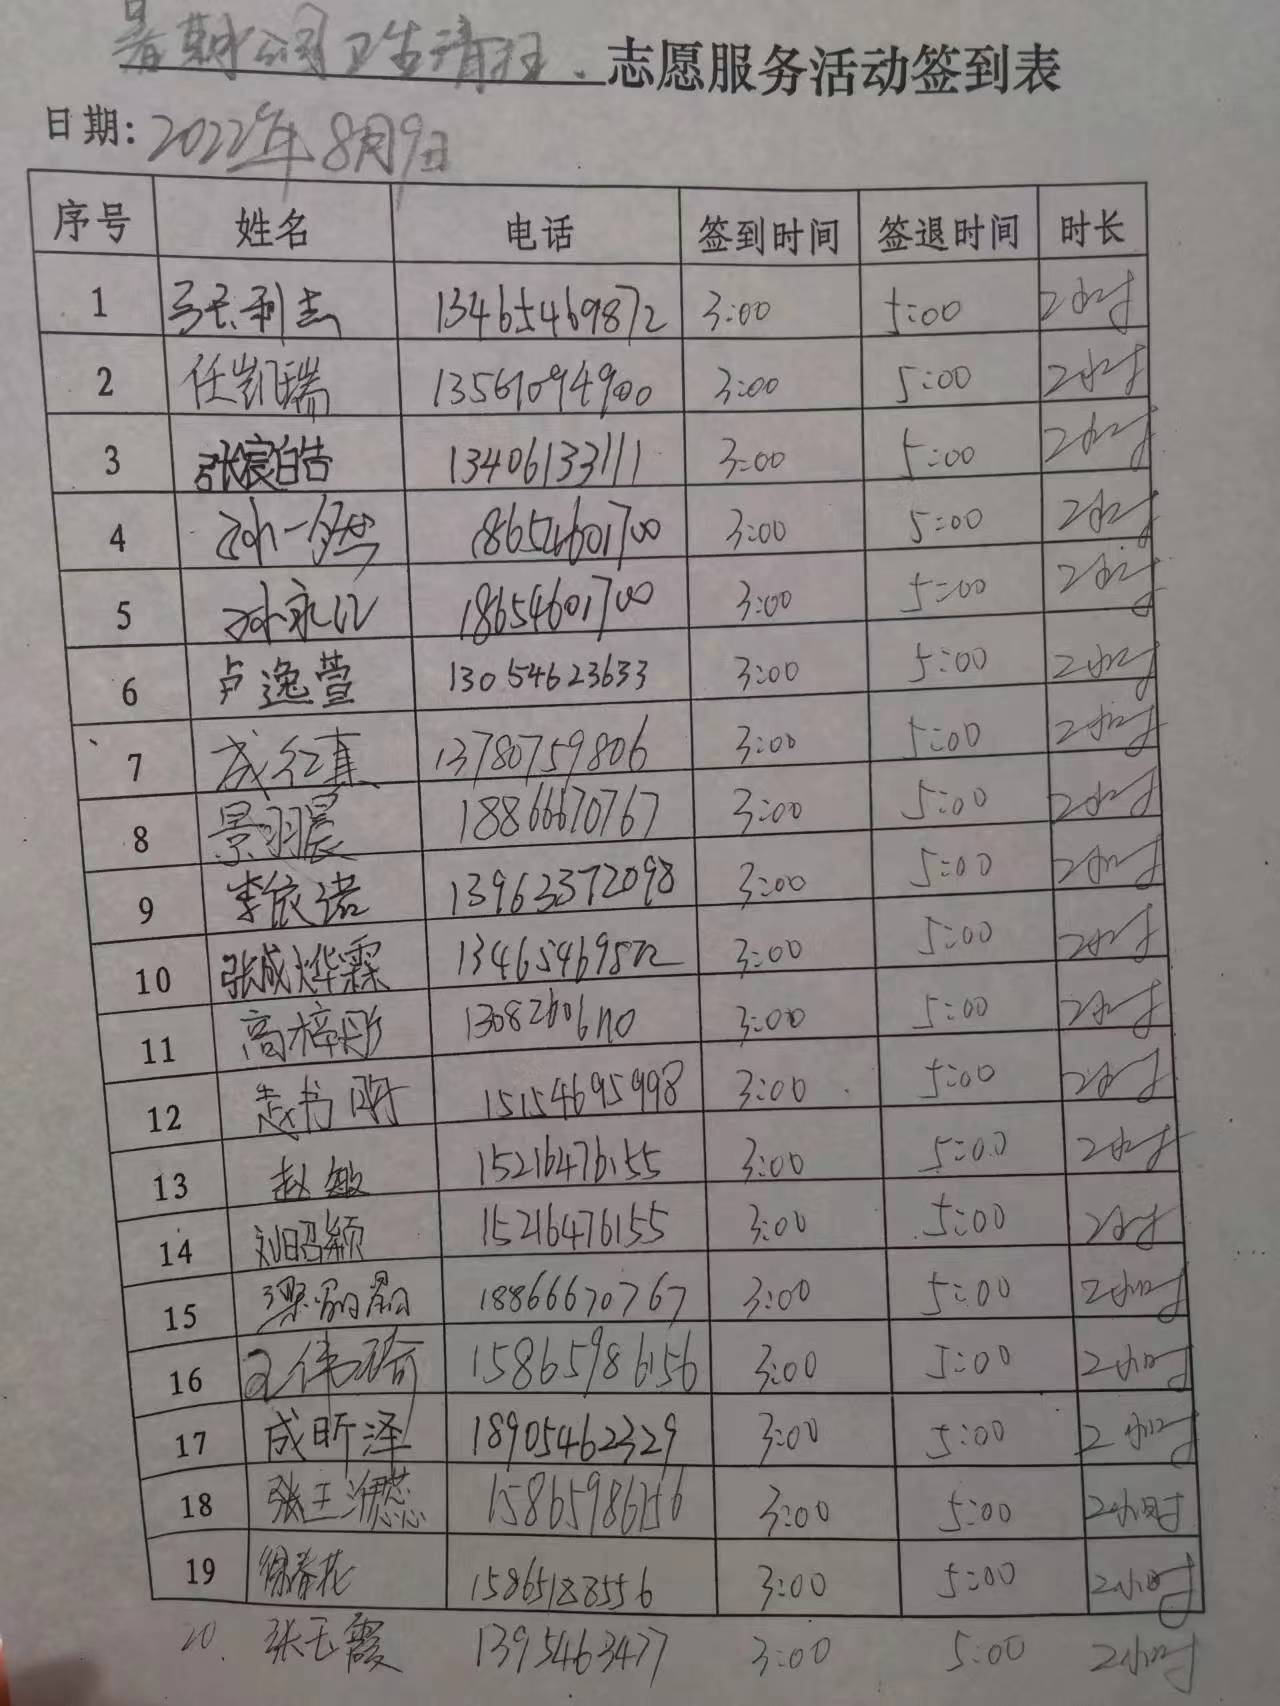 暑期 卫生清扫 志愿服务活动签到表
日期: 2022年8月9日
序号 姓名 电话 签到时间 签退时间 时长
1 13465469872 3:00 5:00 2小时
2 任凯瑞 13561094900 3:00 5:00 2小时
3 张宸皓 13406133111 3:00 5:00 2小时
4 18654601700 3:00 5:00 2小时
5 18654601700 3:00 5:00 2小时
6 卢逸萱 13054623633 3:00 5:00 2小时
7 成红真 13780759806 3:00 5:00 2小时
8 景羽晨 18866670767 3:00 5:00 2小时
9 李依诺 13963372098 3:00 5:00 2小时
10 张成烨霖 13465469872 3:00 5:00 2小时
11 高梓彤 3:00 5:00 2小时
12 赵书 15154695998 3:00 5:00 2小时
13 赵敏 15216476155 3:00 5:00 2小时
14 刘昭颖 15216476155 3:00 5:00 2小时
15 18866670767 3:00 5:00 2小时
16 王伟瑜 15865986156 3:00 5:00 2小时
17 成昕泽 18905462329 3:00 5:00 2小时
18 张王 15865986156 3:00 5:00 2小时
19 徐春花 15865188556 3:00 5:00 2小时
20. 张玉霞 1395463477 3:00 5:00 2小时